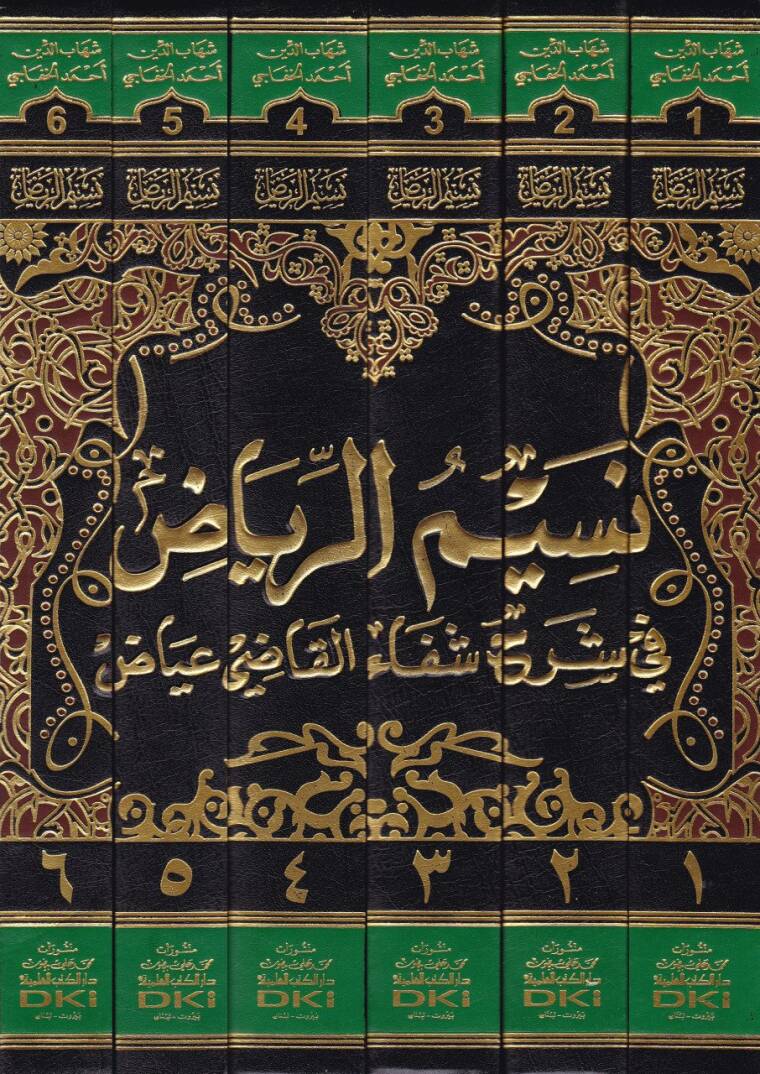 شهاب الدين أحمد الخفاجي
1
نسيم الرياض
شهاب الدين أحمد الخفاجي
2
نسيم الرياض
شهاب الدين أحمد الخفاجي
3
نسيم الرياض
شهاب الدين أحمد الخفاجي
4
نسيم الرياض
شهاب الدين أحمد الخفاجي
5
نسيم الرياض
شهاب الدين أحمد الخفاجي
6
نسيم الرياض
نَسِيْمُ الرِّيَاضِ
في شرح شفاء القاضي عياض
١
٢
٣
٤
٥
٦
منشورات
محمد علي بيضون
دار الكتب العلمية
DKi
بيروت - لبنان
منشورات
محمد علي بيضون
دار الكتب العلمية
DKi
بيروت - لبنان
منشورات
محمد علي بيضون
دار الكتب العلمية
DKi
بيروت - لبنان
منشورات
محمد علي بيضون
دار الكتب العلمية
DKi
بيروت - لبنان
منشورات
محمد علي بيضون
دار الكتب العلمية
DKi
بيروت - لبنان
منشورات
محمد علي بيضون
دار الكتب العلمية
DKi
بيروت - لبنان